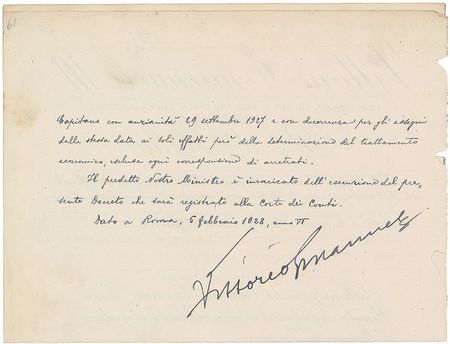 61
Capitano con anzianità 29 settembre 1927 e con decorrenza per gli assegni
dalla stessa data ai soli effetti però della determinazione del trattamento
economico, esclusa ogni corresponsione di arretrati.
Il predetto Nostro Ministro è incaricato dell'esecuzione del pre-
sente Decreto che sarà registrato alla Corte dei Conti.
Dato a Roma, 5 febbraio 1928, anno VI
Vittorio Emanuele